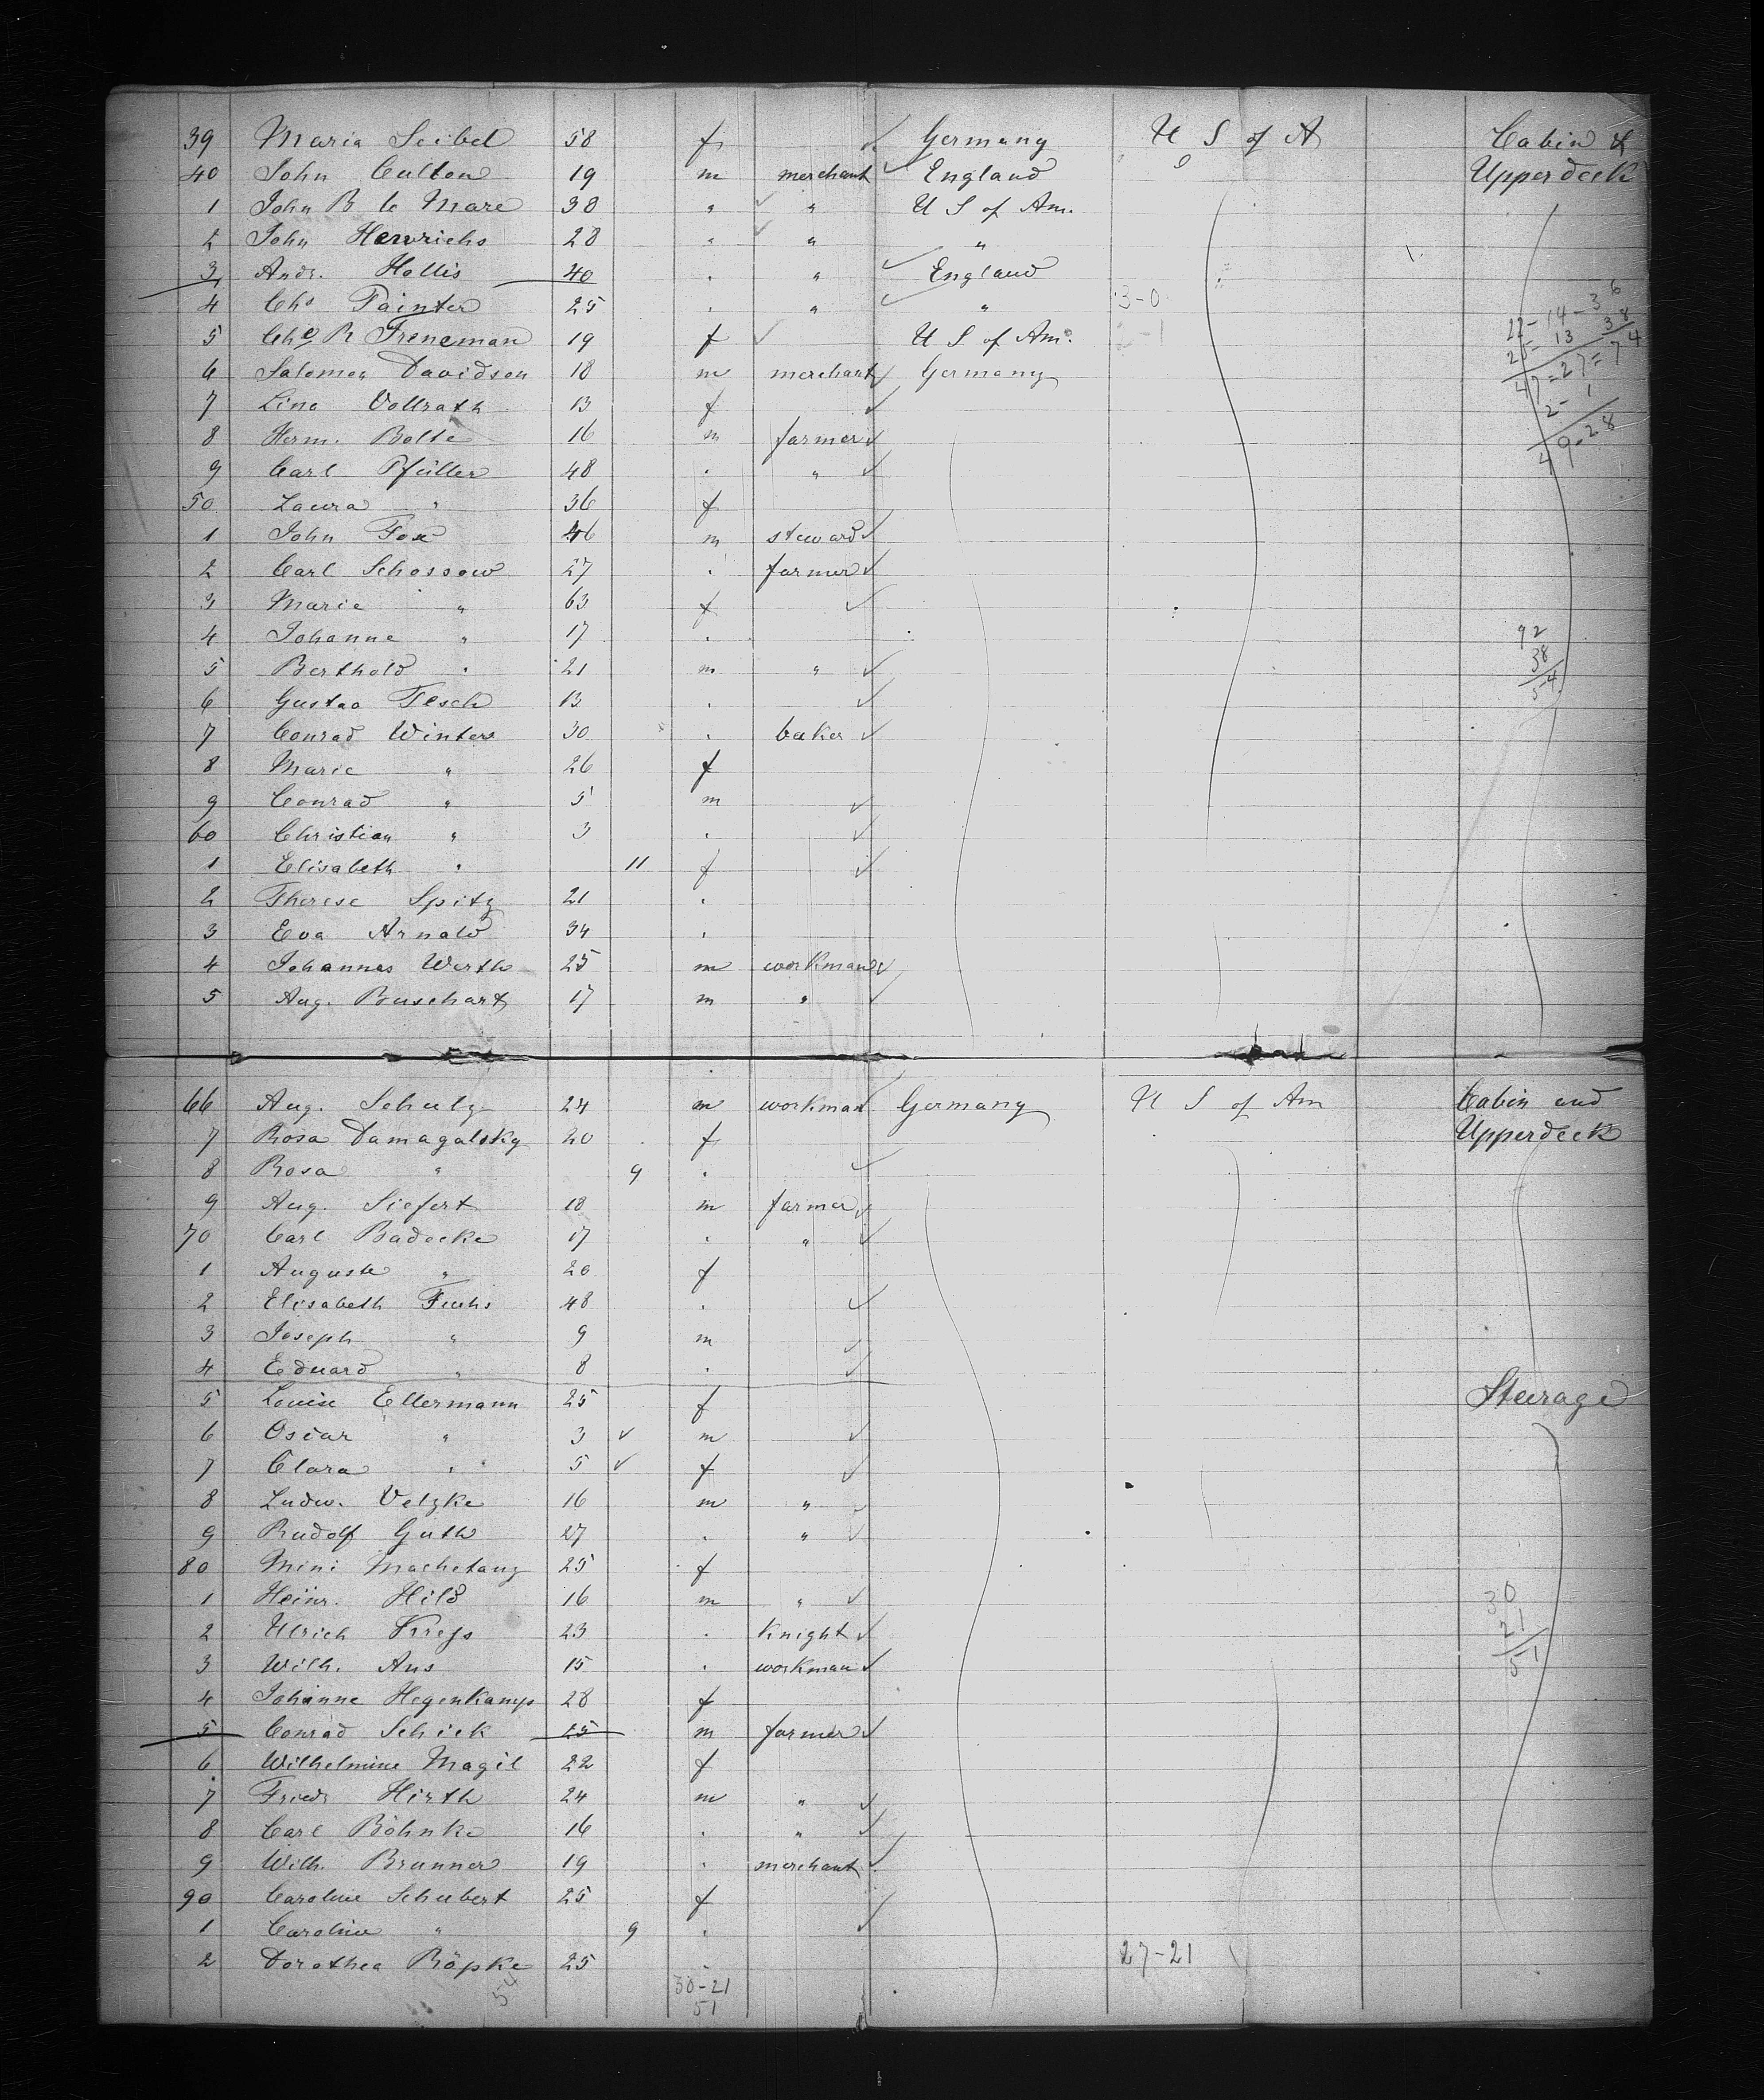 39 Maria Seibel 58 f Germany U S of A Cabin &
40 John Culton 19 m merchant England Upperdeck
1 John B le Mare 38 " " U S of Am.
2 John Henrichs 28 " " "
3 Andr. Hollis 40 " " England
4 Chs Painter 25 " " " 3-0
5 Chs R Freneman 19 f U S of Am. 2-1
6 Salomon Davidson 18 m merchant Germany
7 Lina Vollrath 13 f
8 Herm. Bolte 16 m farmer
9 Carl Pfüller 48 " "
50 Laura " 36 f
1 John Fox 46 m steward
2 Carl Schossow 27 " farmer
3 Marie " 63 f
4 Johanne " 17 "
5 Berthold " 21 m "
6 Gustav Tesch 13 "
7 Conrad Winters 30 " baker
8 Marie " 26 f
9 Conrad " 5 m
60 Christian " 3 "
1 Elisabeth " 11 f
2 Therese Spitz 21 "
3 Eva Arnold 34 "
4 Johannes Werth 25 m workman
5 Aug. Buschart 17 m "
22-14-36
25-13 38
47=27=74
2-1
49-28
92
38
54
66 Aug. Schulz 24 m workman Germany U S of Am Cabin and
7 Rosa Damagalsky 20 f Upperdeck
8 Rosa " 9 "
9 Aug. Siefert 18 m farmer
70 Carl Badecke 17 " "
1 Auguste " 20 f
2 Elisabeth Fuchs 48 "
3 Joseph " 9 m
4 Eduard " 8 "
5 Louise Ellermann 25 f Steerage
6 Oscar " 3 m
7 Clara " 5 f
8 Ludw. Velzke 16 m "
9 Rudolf Guth 27 " "
80 Mini Machetanz 25 f
1 Heinr. Hild 16 m "
2 Ulrich Kress 23 " Knight
3 Wilh. Aus 15 " workman
4 Johanne Hegenkamp 28 f
5 Conrad Schick 25 m farmer
6 Wilhelmine Magil 22 f
7 Friedr Hirth 24 m "
8 Carl Böhnke 16 " "
9 Wilh. Brunner 19 " merchant
90 Caroline Schubert 25 f
1 Caroline " 9 "
2 Dorothea Röpke 25 " 27-21
30
21
51
54 30-21
51